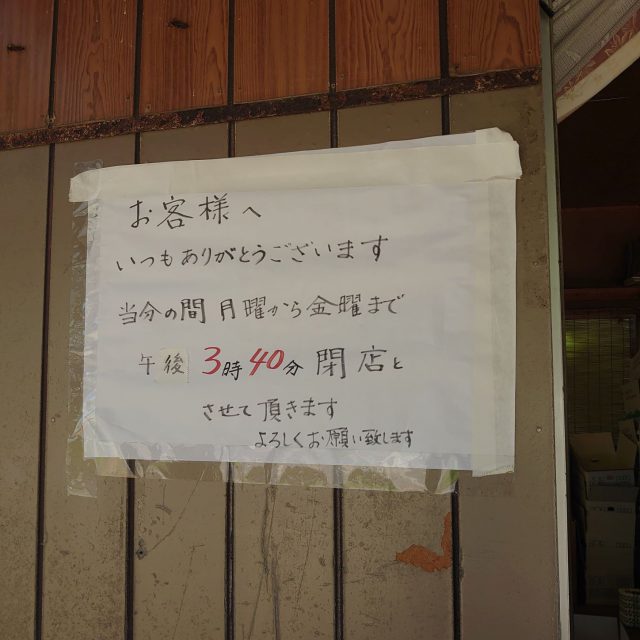 お客様へ
いつもありがとうございます
当分の間月曜から金曜まで
午後3時40分閉店と
させて頂きます
よろしくお願い致します